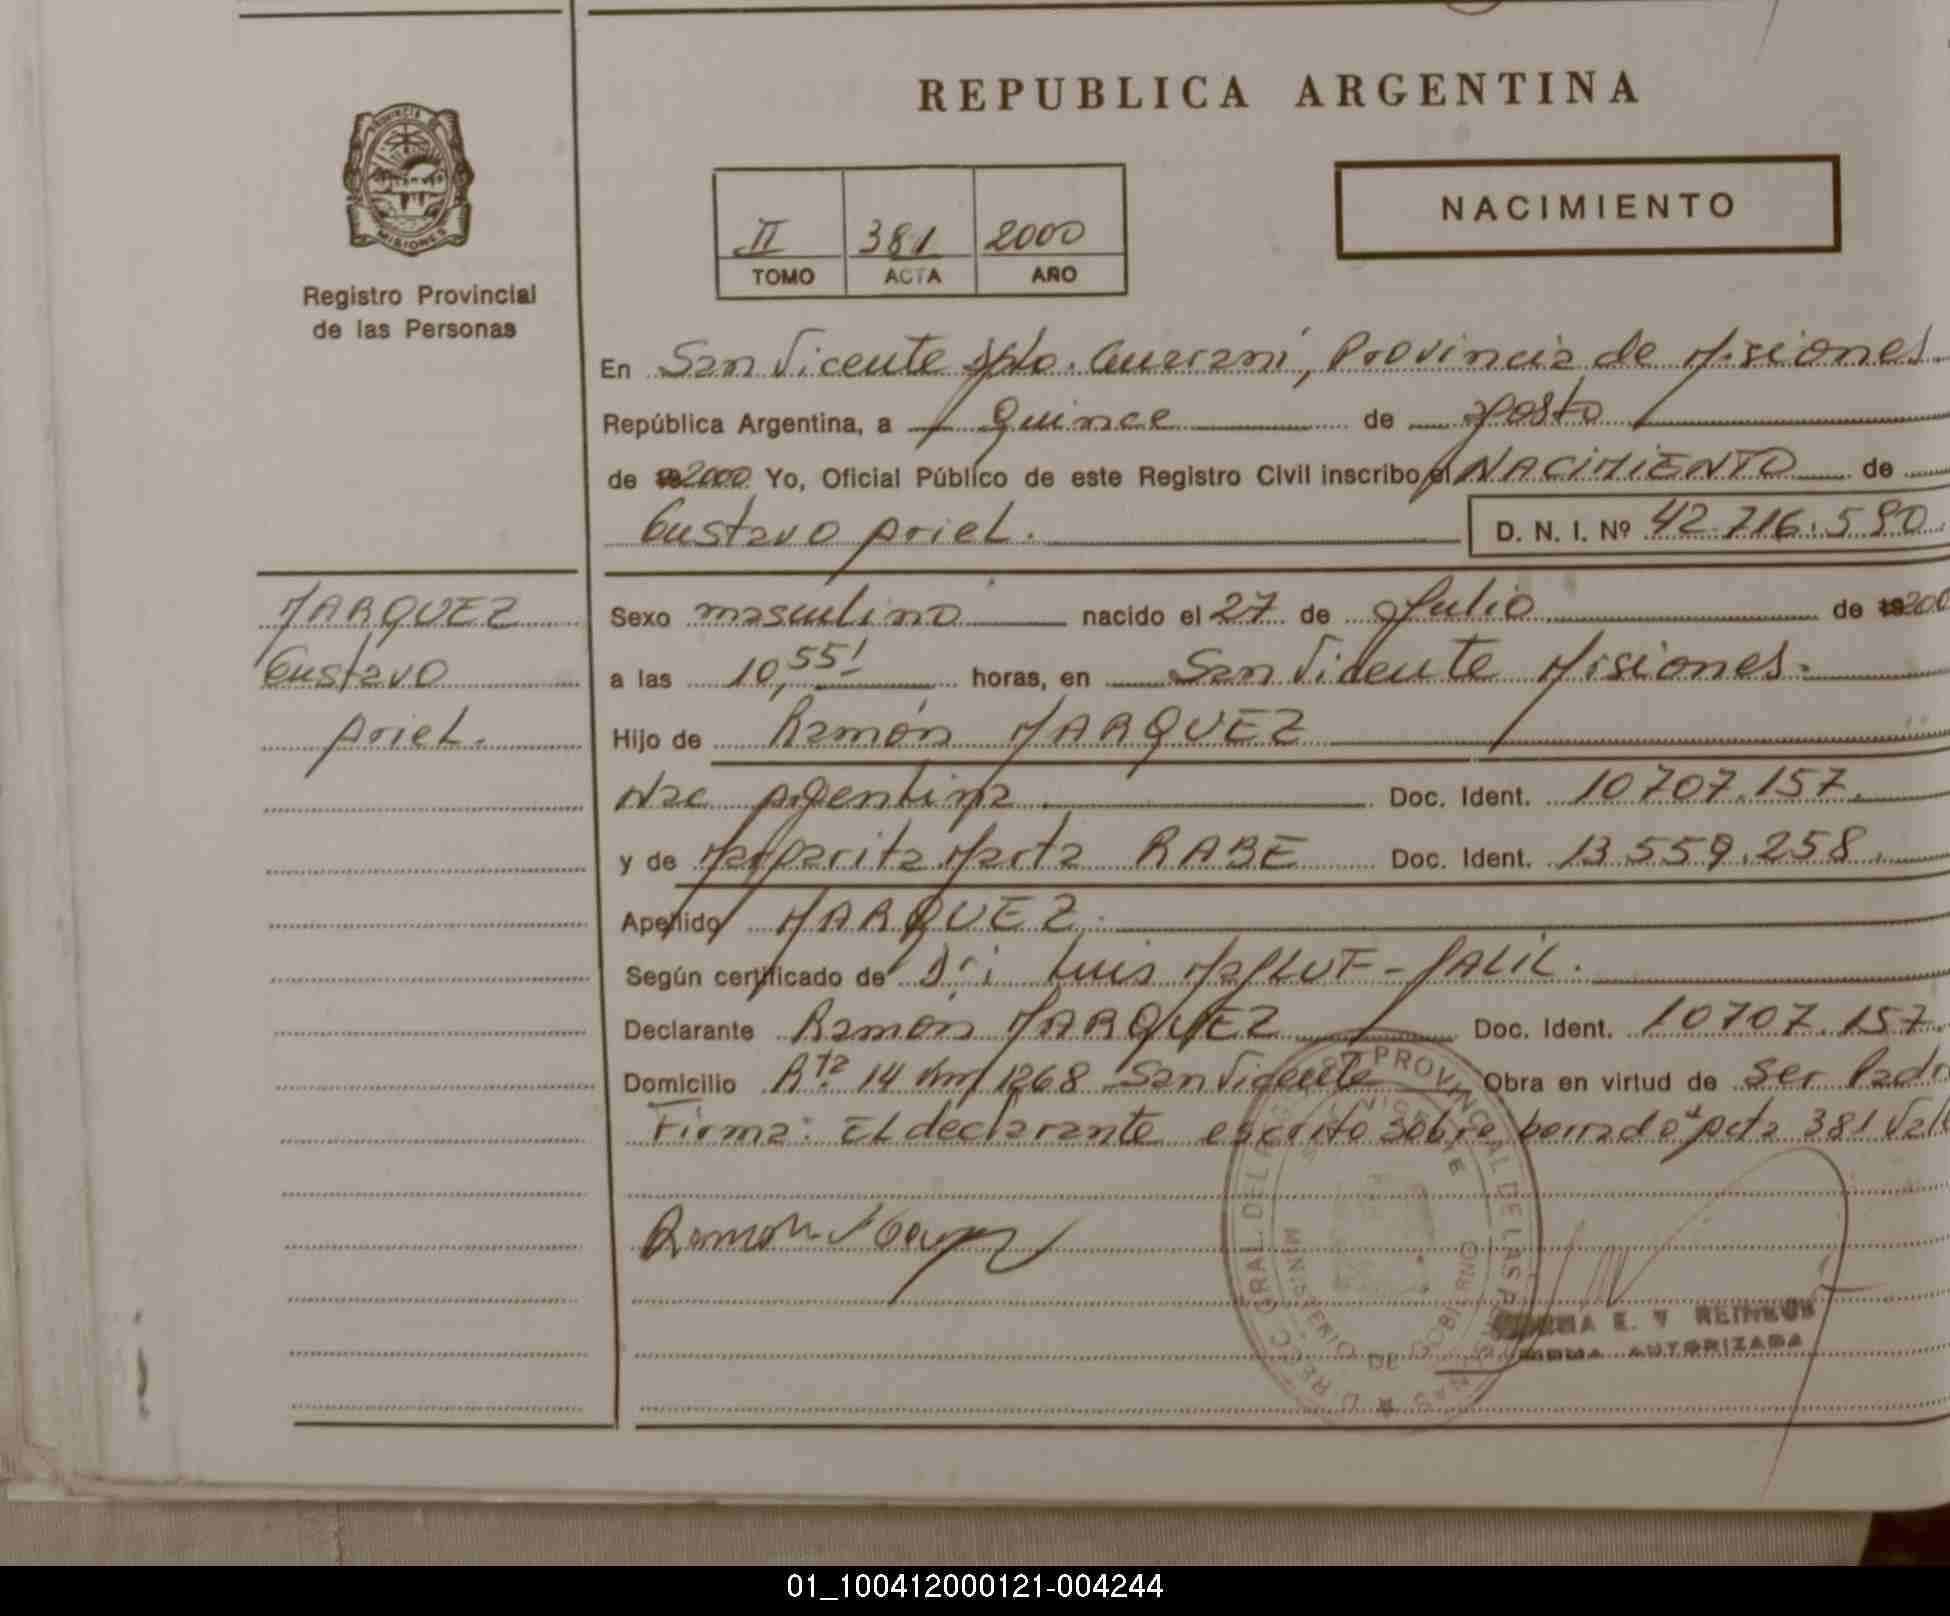 REPUBLICA ARGENTINA
PROVINCIA DE MISIONES
Registro Provincial
de las Personas
II 381 2000
TOMO ACTA AÑO
NACIMIENTO
En San Vicente Dpto. Guarani, Provincia de Misiones
República Argentina, a quince de agosto
de 2000 Yo, Oficial Público de este Registro Civil inscribo el NACIMIENTO de
Gustavo Ariel. D. N. I. Nº 42.716.590
MARQUEZ
Gustavo
Ariel.
Sexo masculino nacido el 27 de Julio de 19 200
a las 10,55' horas, en San Vicente Misiones.
Hijo de Ramón MARQUEZ
Nac Argentina Doc. Ident. 10707.157.
y de Margarita Marta RABE Doc. Ident. 13.559.258.
Apellido MARQUEZ.
Según certificado de Luis
Declarante Ramón MARQUEZ Doc. Ident. 10707.157.
Domicilio Rta. 14 Km 1268 San Vicente Obra en virtud de ser Padr
Firma: El declarante escrito sobre borrado Acta 381 Vale
Ramon
DIRECC. GRAL. DEL REGISTRO PROVINCIAL DE LAS PERSONAS
SAN VICENTE
MINISTERIO DE GOBIERNO
E. V
FIRMA AUTORIZADA
01_100412000121-004244